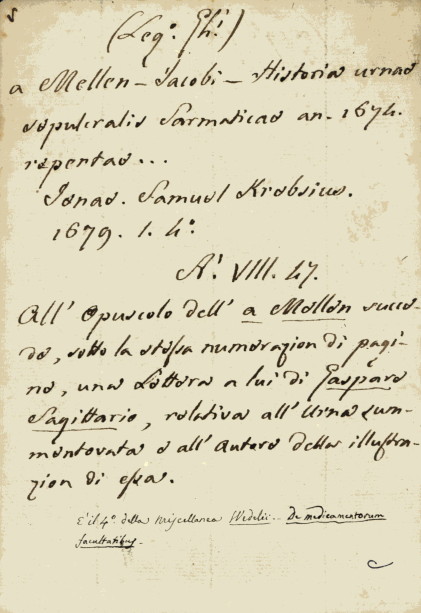 (Leg.º Gh.i)
a Mellen - Jacobi - Historia urnae
sepulcralis Sarmaticae an. 1674.
repertae...
Jenae. Samuel Krebsius.
1679. 1. 4.º
A.i VIII. 47.
All' Opuscolo dell' a Mellen succe-
de, sotto la stessa numerazion di pagi-
ne, una Lettera a lui di Gaspare
Sagittario, relativa all' Urna sum-
mentovata e all' autore della illustra-
zion di essa.
È il 4.º della Miscellanea Wedelii.. De medicamentorum
facultatibus.